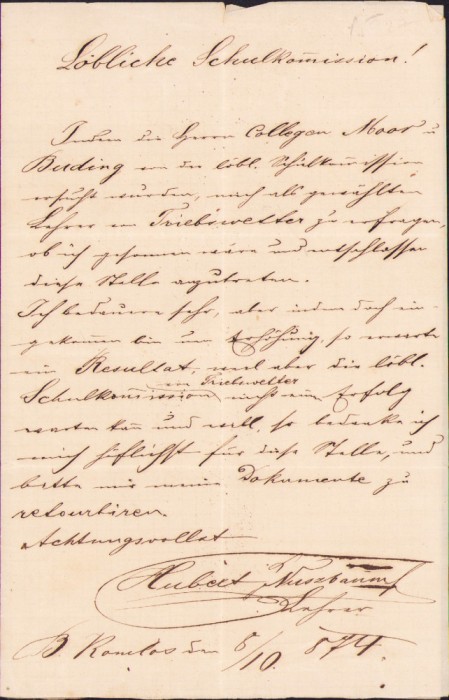 Löbliche Schulkom̄ission!
Indem die Herrn Collegen Moor u
Berding von der löbl. Schulkom̄ission
ersucht wurden, mich als gewählten
Lehrer von Triebswetter zu erfragen,
ob ich gesonnen wäre und entschlossen
diese Stelle anzutreten.
Ich bedauere sehr, aber indem doch ein-
gekommen bin um Erhöhung, so erwarte
ein Resultat, weil aber die löbl.
Schulkom̄ission von Triebswetter nicht ein Erfolg
warten kan und will, so bedanke ich
mich höflichst für diese Stelle, und
bitte mir meine Dokumente zu
retourbiren.
Achtungsvollst
Hubert Nuszbaum
Lehrer
B. Komlos den 8/10 874.